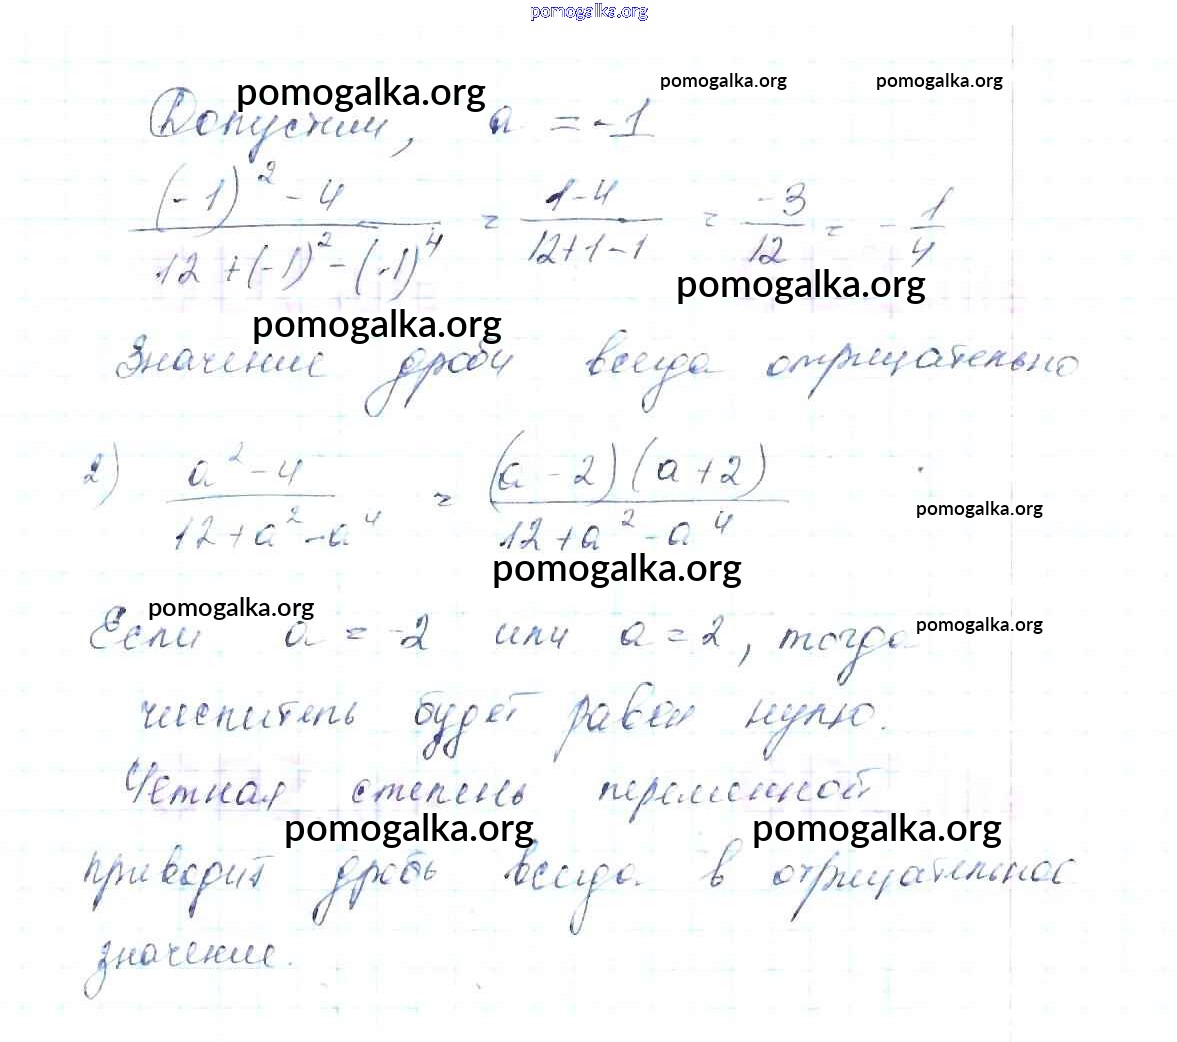 pomogalka.org
pomogalka.org pomogalka.org pomogalka.org
Допустим, a = -1
((-1)^2 - 4)/(12 + (-1)^2 - (-1)^4) = (1-4)/(12+1-1) = -3/12 = -1/4
pomogalka.org
pomogalka.org
Значение дроби всегда отрицательно
2) (a^2 - 4)/(12 + a^2 - a^4) = ((a - 2)(a + 2))/(12 + a^2 - a^4)
pomogalka.org
pomogalka.org
pomogalka.org
Если a = -2 или a = 2, тогда
pomogalka.org
числитель будет равен нулю.
Четная степень переменной
pomogalka.org pomogalka.org
приводит дробь всегда в отрицательное
значение.